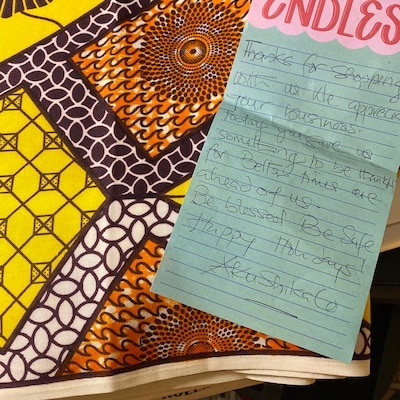 ENDLES
Thanks for shopping
with us We apprecia
your business.
Today you gave us
something to be thankful
for Better times are
ahead of us.
Be blessed Be Safe
Happy Holidays!